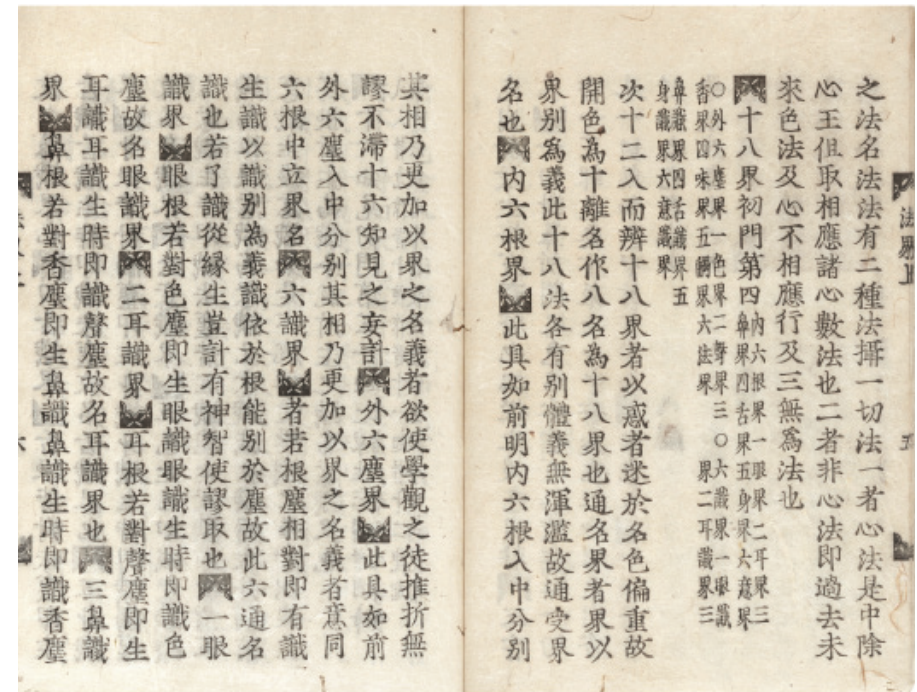 之法名法法有二種法攝一切法一者心法是中除
心王但取相應諸心數法也二者非心法即過去未
來色法及心不相應行及三無爲法也
十八界初門第四 內六根界一眼界二耳界三
鼻界四舌界五身界六意界
○外六塵界一色界二聲界三
香界四味界五觸界六法界
○六識界一眼識
界二耳識界三
鼻識界四舌識界五
身識界六意識界
次十二入而辨十八界者以惑者迷於名色偏重故
開色為十離名作八名為十八界也通名界者界以
界別爲義此十八法各有別體義無渾濫故通受界
名也 內六根界 此具如前明內六根入中分別
其相乃更加以界之名義者欲使學觀之徒推折無
謬不滯十六知見之妄計 外六塵界 此具如前
外六塵入中分別其相乃更加以界之名義者意同
六根中立界名 六識界 者若根塵相對即有識
生識以識別為義識依於根能別於塵故此六通名
識也若了識從緣生豈計有神智使謬取也 一眼
識界 眼根若對色塵即生眼識眼識生時即識色
塵故名眼識界 二耳識界 耳根若對聲塵即生
耳識耳識生時即識聲塵故名耳識界也 三鼻識
界 鼻根若對香塵即生鼻識鼻識生時即識香塵
法界上
五
六